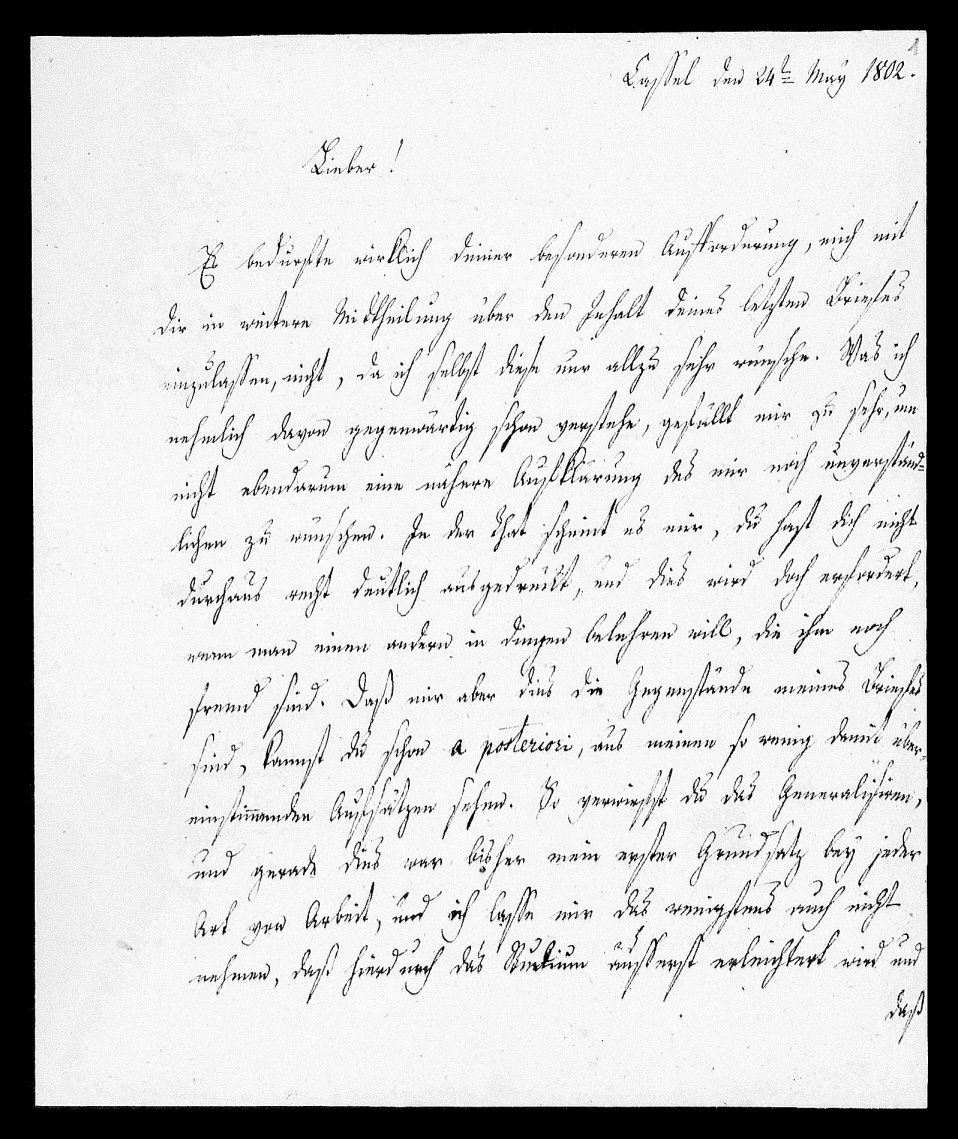 1
Cassel den 24t May 1802.
Lieber!
Es bedurfte wirklich deiner besonderen Aufforderung, mich mit
dir in weitere Mittheilung über den Inhalt deines letzten Briefes
einzulassen, nicht, da ich selbst diese nur allzu sehr wünsche. Was ich
nehmlich davon gegenwärtig schon verstehe, gefällt mir zu sehr, um
nicht ebendarum eine nähere Aufklärung des mir noch unverständ-
lichen zu wünschen. In der That scheint es mir, du hast dich nicht
durchaus recht deutlich ausgedrückt, und dies wird doch erfordert,
wenn man einen andern in dingen belehren will, die ihm noch
fremd sind. Daß mir aber dies die Gegenstände meines Briefes
sind, kannst du schon a posteriori, aus meinen so wenig damit über-
einstimmenden Aufsätzen sehen. So verwirfst du das Generalisiren,
und gerade dies war bisher mein erster Grundsatz bey jeder
Art von Arbeit, und ich lasse mir das wenigstens auch nicht
nehmen, daß hierdurch das Studium äusserst erleichtert wird und
daß